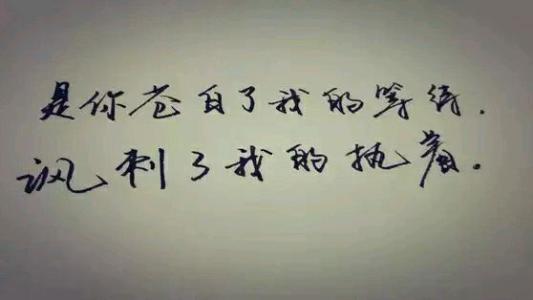 是你苍白了我的等待.
讽刺了我的执着。